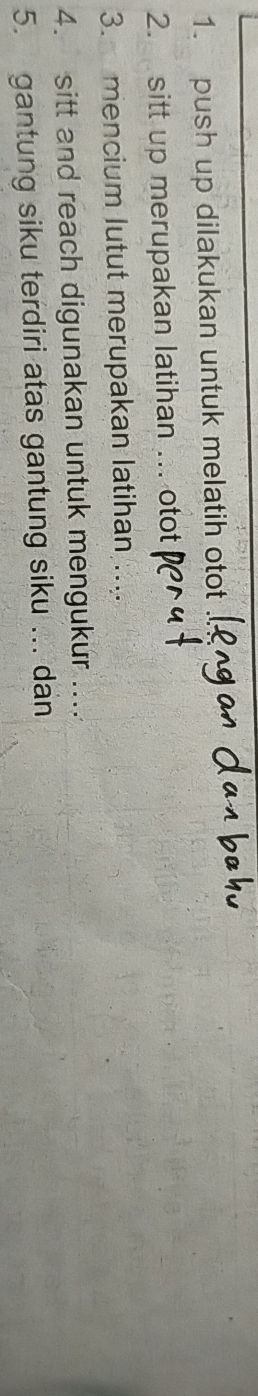 1. push up dilakukan untuk melatih otot .... lengan dan bahu
2. sitt up merupakan latihan .... otot perut
3. mencium lutut merupakan latihan ....
4. sitt and reach digunakan untuk mengukur ....
5. gantung siku terdiri atas gantung siku ... dan